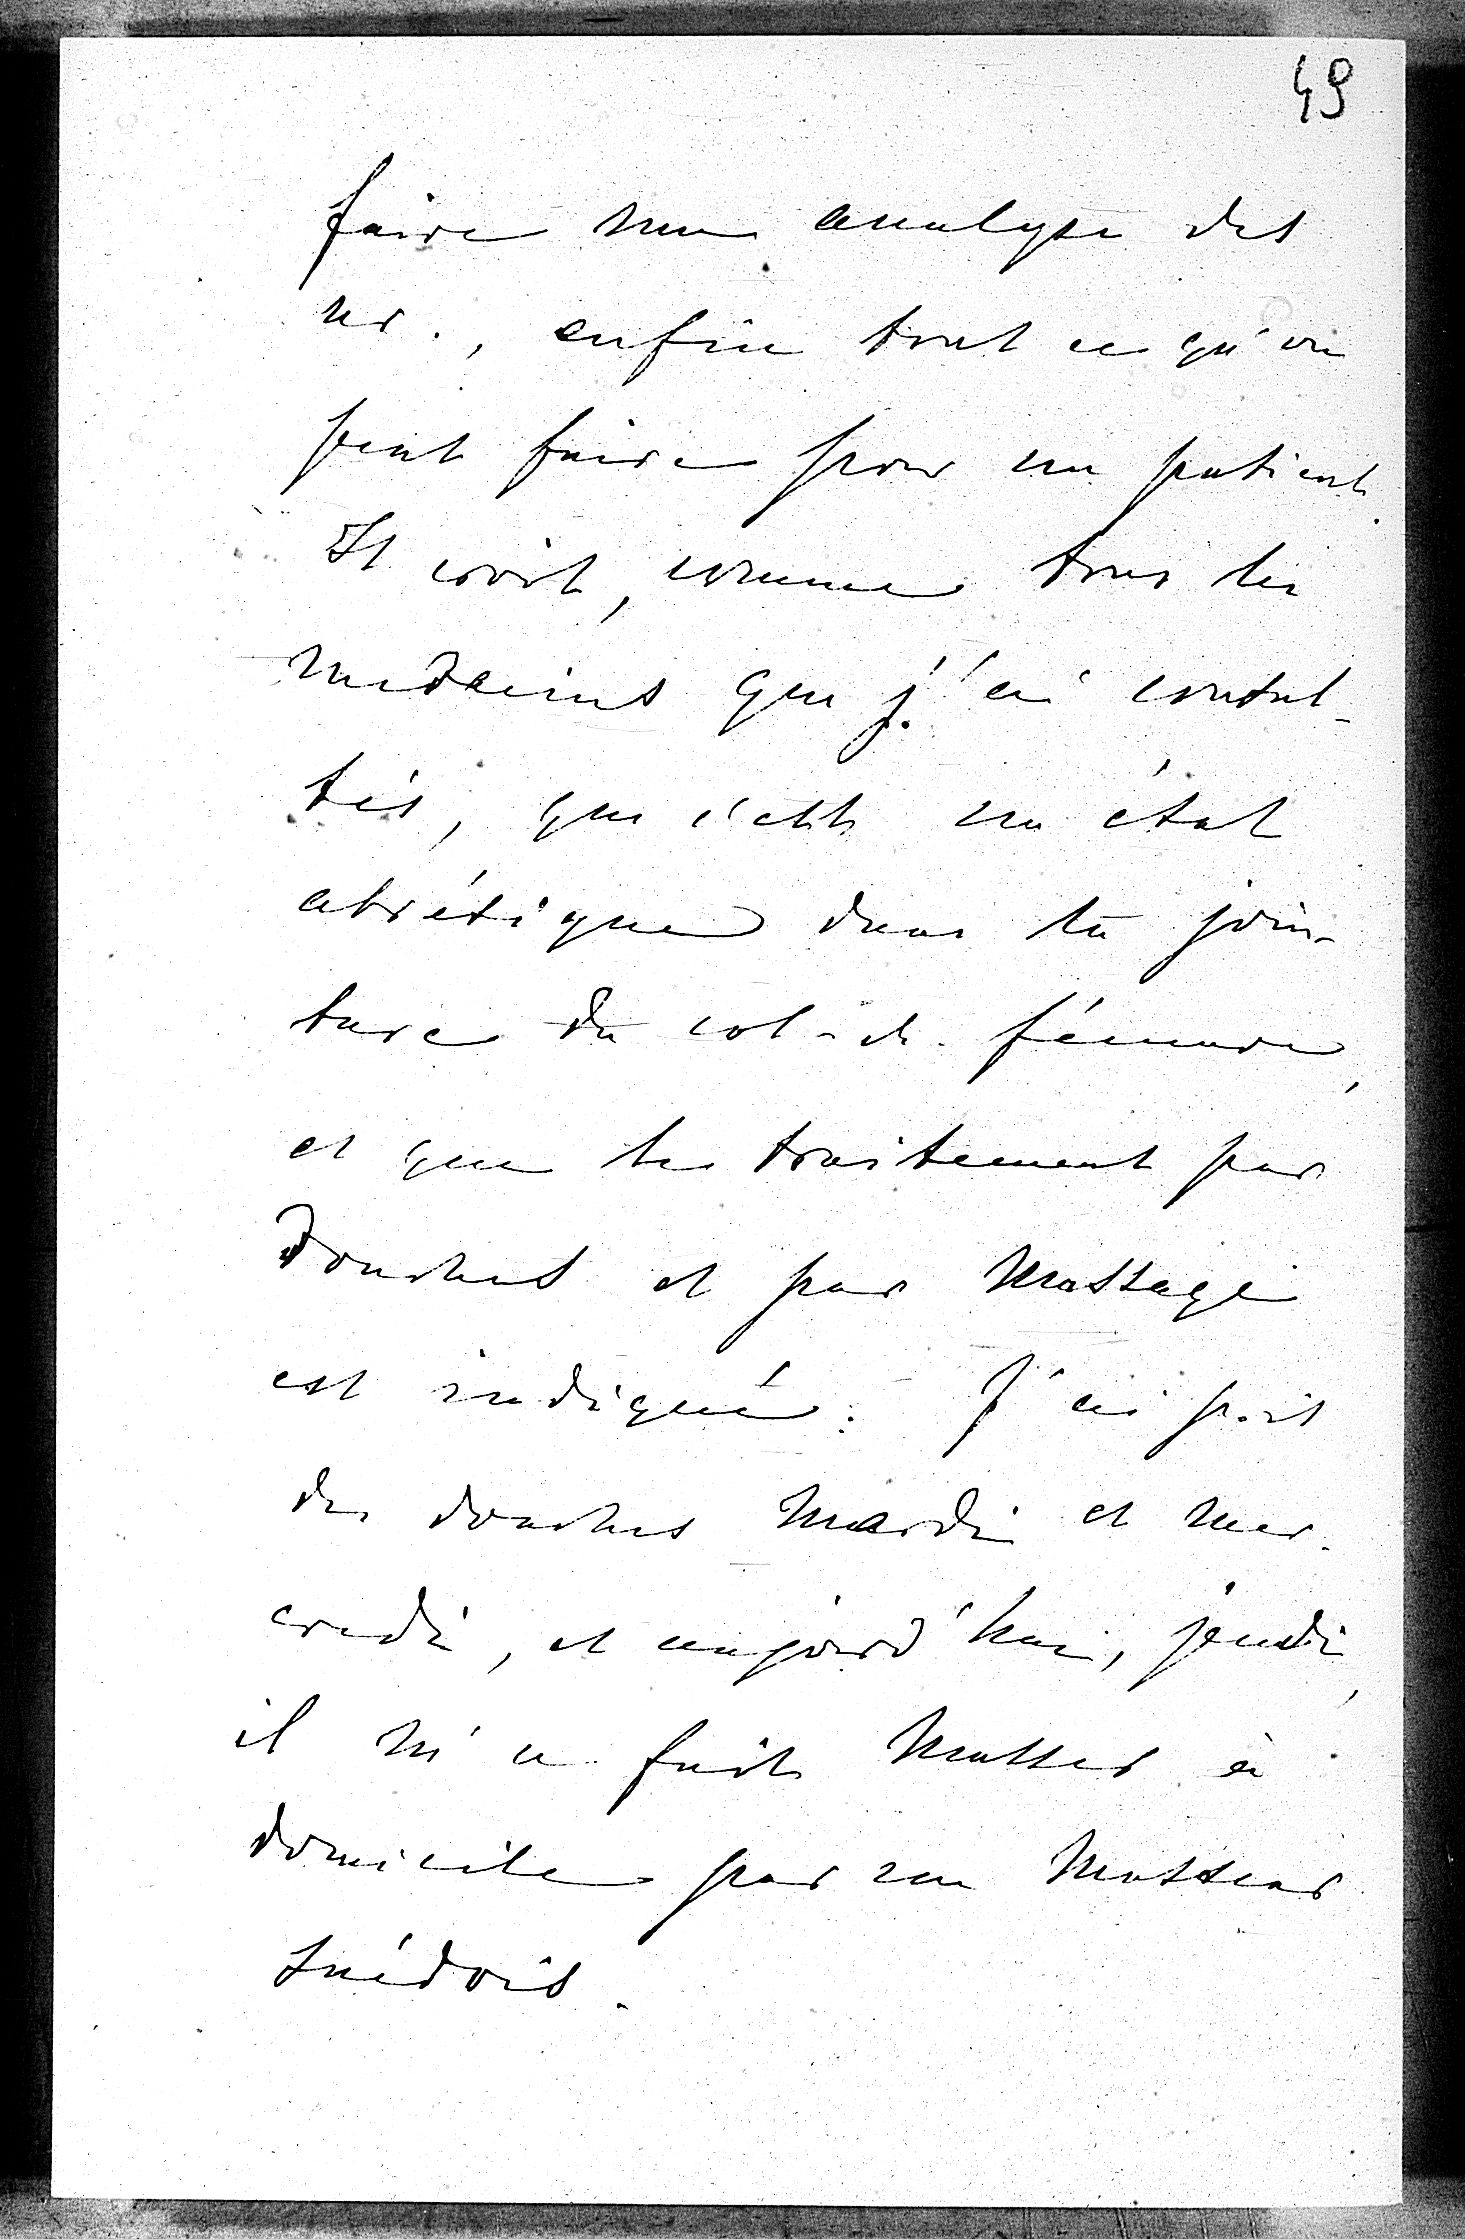 49
faire une analyse des
ur., enfin tout ce qu'on
peut faire pour un patient.
Il croit, comme tous les
medecins que j'ai consul-
tés, que c'est un état
atrétique dans la join-
ture du col-de-fémure,
et que le traitement par
douches et par massage
est indiqué. J'ai pris
des douches mardi et mer-
credi, et aujourd'hui, jeudi,
il m'a fait masser à
domicile par un masseur
suédois.